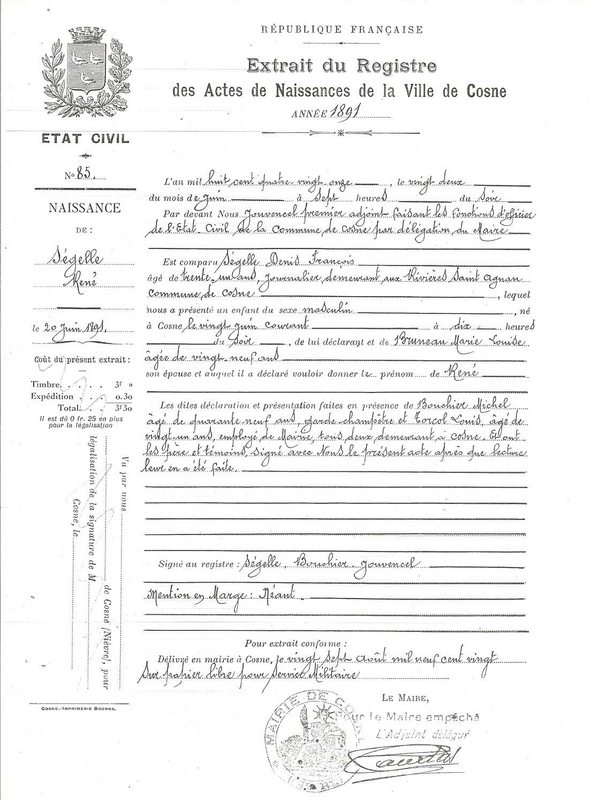 RÉPUBLIQUE FRANÇAISE
Extrait du Registre
des Actes de Naissances de la Ville de Cosne
ANNÉE 1891
ETAT CIVIL
No 85.
NAISSANCE
DE :
Ségelle
René
le 20 Juin 1891.
Coût du présent extrait :
Timbre. . . . 3f »
Expédition . . 0.30
Total. . . 3f30
Il est dû 0 fr. 25 en plus
pour la légalisation
Vu par nous
de Cosne (Nièvre), pour
légalisation de la signature de M
Cosne, le
COSNE.-IMPRIMERIE BOURRA.
L'an mil huit cent quatre vingt onze, le vingt deux
du mois de Juin à sept heures du Soir
Par devant Nous Jouvencel premier adjoint faisant les fonctions d'officier
de l'Etat Civil de la Commune de Cosne par délégation du Maire
Est comparu Ségelle Denis François
âgé de trente un ans, Journalier demeurant aux Rivières Saint Agnan
Commune de Cosne, lequel
nous a présenté un enfant du sexe masculin, né
à Cosne le vingt Juin courant à dix heures
du soir, de lui déclarant et de Bruneau Marie Louise
âgée de vingt neuf ans
son épouse et auquel il a déclaré vouloir donner le prénom de René
Les dites déclaration et présentation faites en présence de Bouchier Michel
âgé de quarante neuf ans, garde champêtre et Torcol Louis, âgé de
vingt un ans, employé de Mairie, tous deux demeurant à Cosne. Et ont
les père et témoins, signé avec Nous le présent acte après que lecture
leur en a été faite.
Signé au registre : Ségelle. Bouchier. Jouvencel
Mention en Marge : Néant.
Pour extrait conforme :
Délivré en mairie à Cosne, le vingt sept Août mil neuf cent vingt
Sur papier libre pour Service Militaire
LE MAIRE,
Pour le Maire empêché
L'Adjoint délégué
MAIRIE DE COSNE